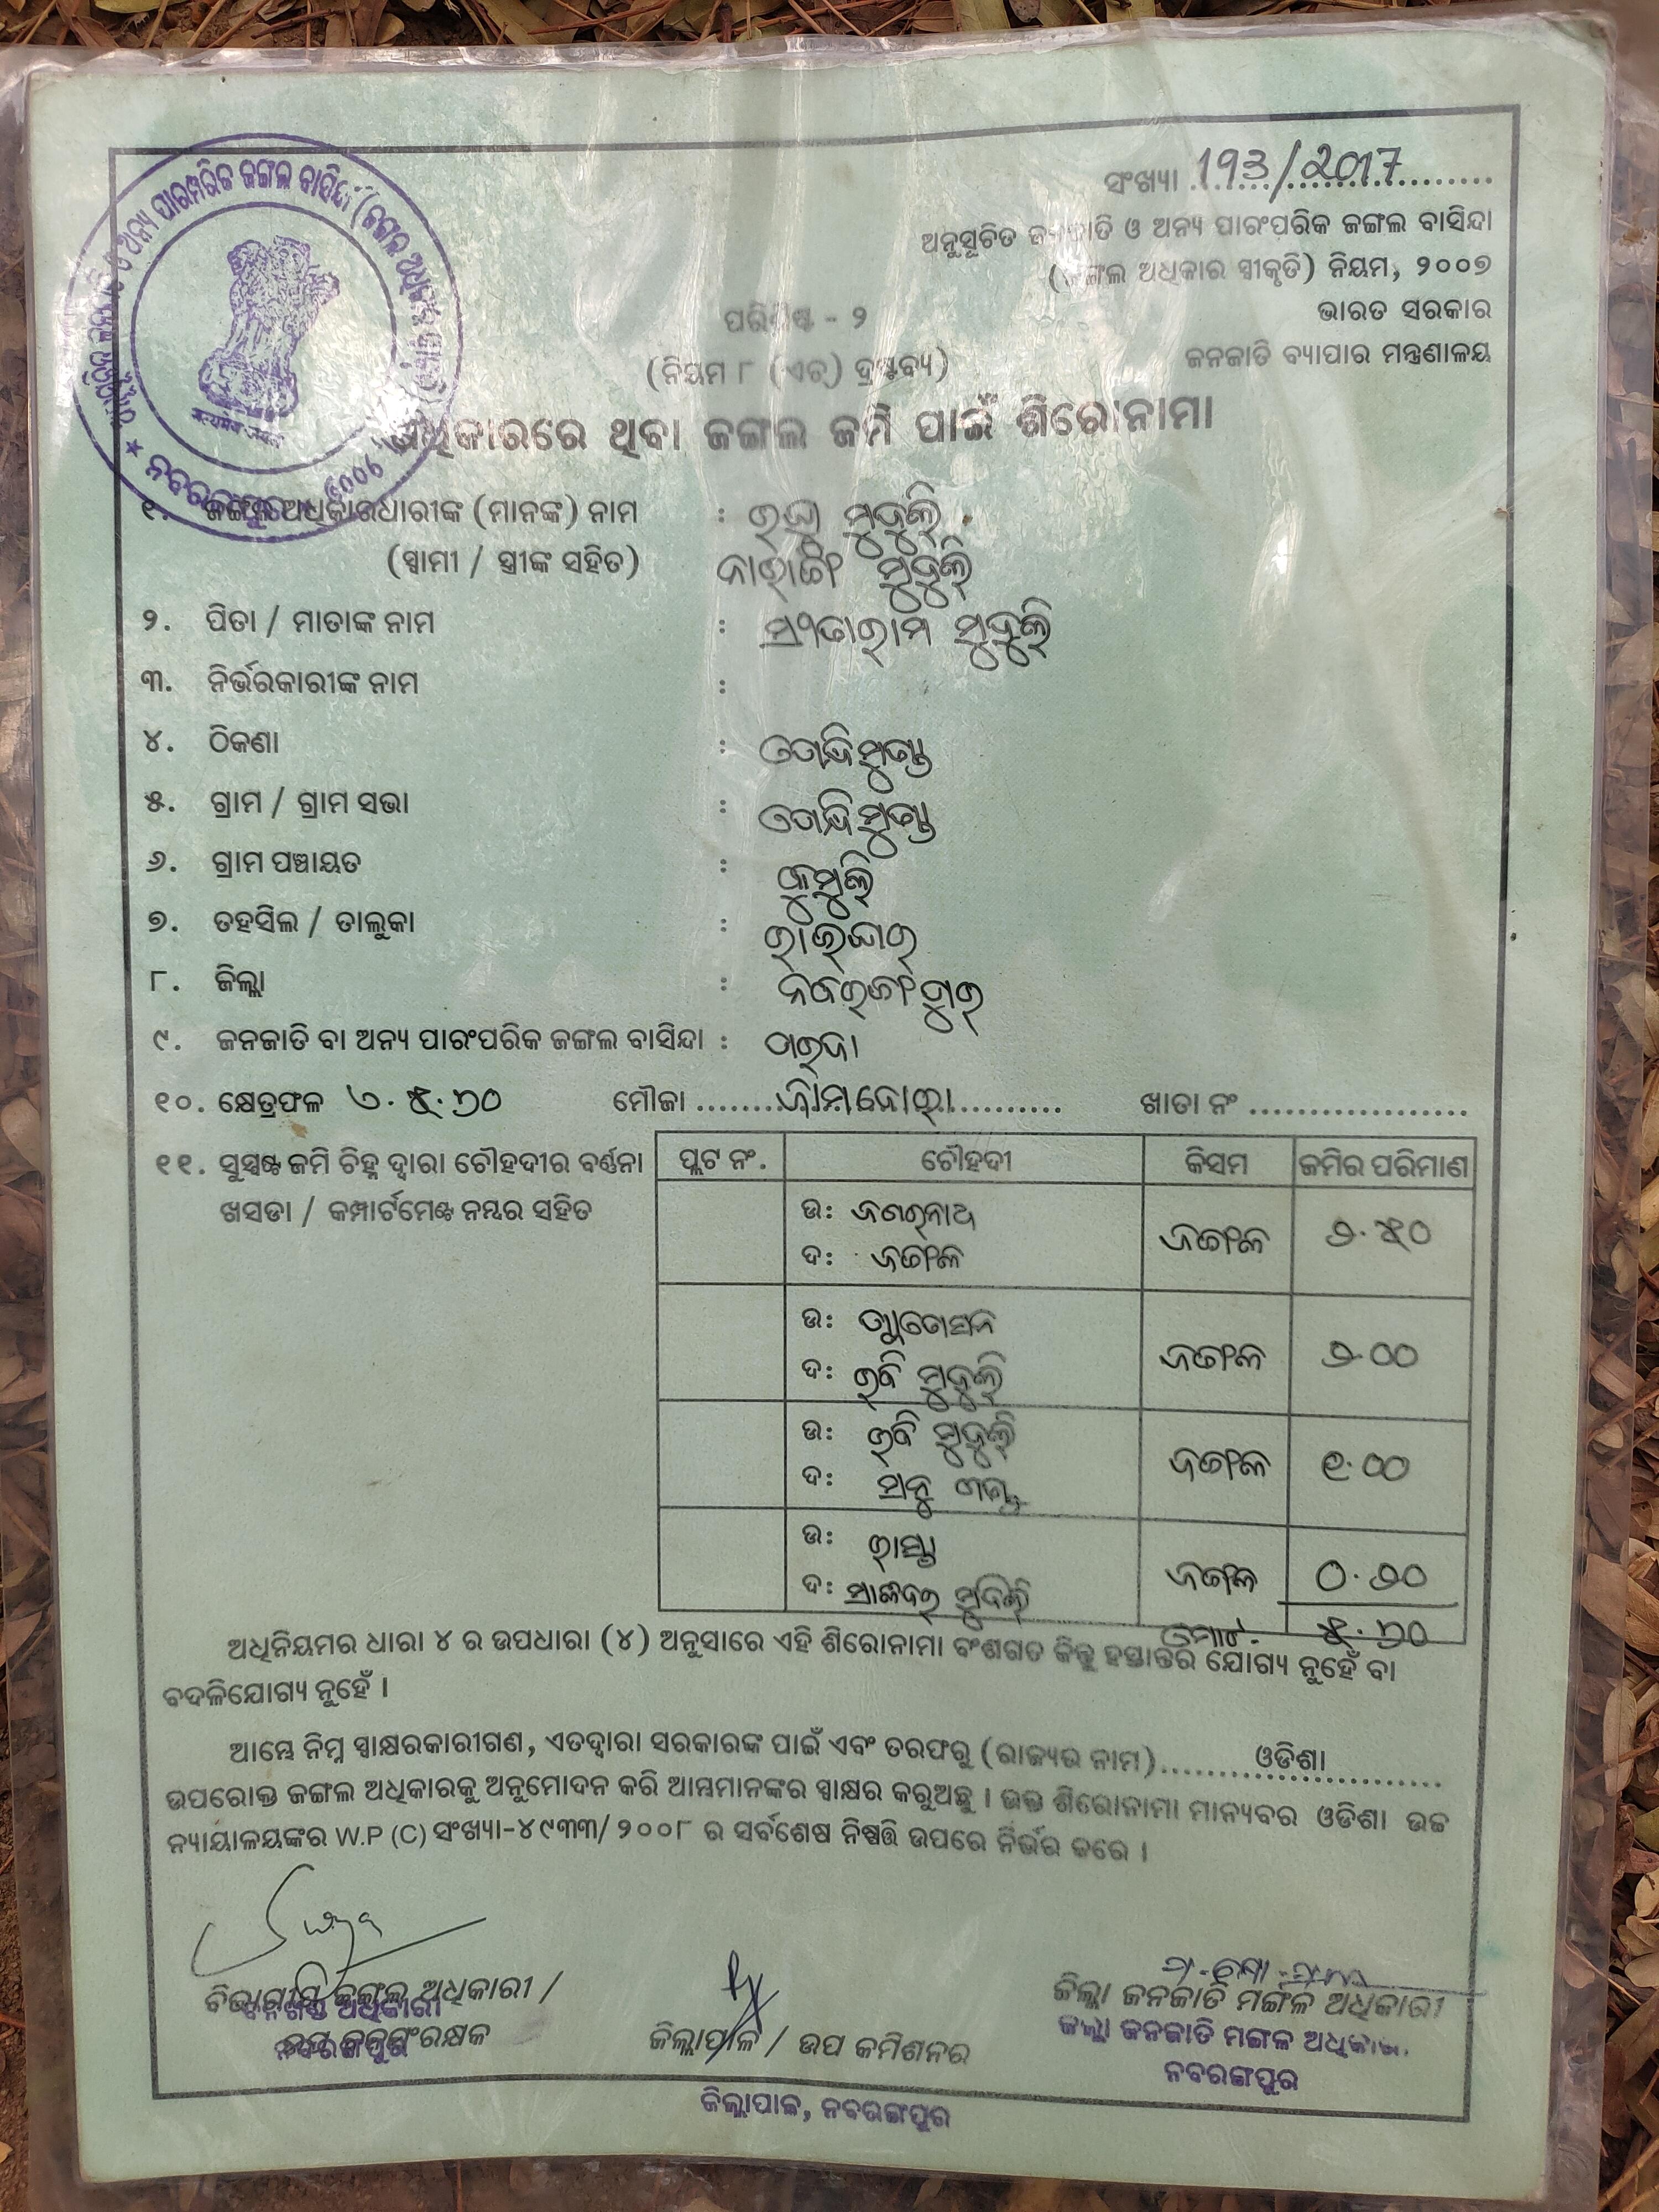 ସଂଖ୍ୟା 193/2017
ଅନୁସୂଚିତ ଜନଜାତି ଓ ଅନ୍ୟ ପାରଂପରିକ ଜଙ୍ଗଲ ବାସିନ୍ଦା
(ଜଙ୍ଗଲ ଅଧିକାର ସ୍ୱୀକୃତି) ନିୟମ, ୨୦୦୭
ଭାରତ ସରକାର
ଜନଜାତି ବ୍ୟାପାର ମନ୍ତ୍ରଣାଳୟ
ପରିଶିଷ୍ଟ - ୨
(ନିୟମ ୮ (ଏଚ୍) ଦ୍ରଷ୍ଟବ୍ୟ)
ଅଧିକାରରେ ଥିବା ଜଙ୍ଗଲ ଜମି ପାଇଁ ଶିରୋନାମା
୧. ଜଙ୍ଗଲ ଅଧିକାରଧାରୀଙ୍କ (ମାନଙ୍କ) ନାମ : ମୁଦୁଲି
(ସ୍ୱାମୀ / ସ୍ତ୍ରୀଙ୍କ ସହିତ) ମୁଦୁଲି
୨. ପିତା / ମାତାଙ୍କ ନାମ : ମୁଦୁଲି
୩. ନିର୍ଭରକାରୀଙ୍କ ନାମ :
୪. ଠିକଣା :
୫. ଗ୍ରାମ / ଗ୍ରାମ ସଭା :
୬. ଗ୍ରାମ ପଞ୍ଚାୟତ : କୁମୁଲି
୭. ତହସିଲ / ତାଲୁକା : ରାଇଘର
୮. ଜିଲ୍ଲା : ନବରଙ୍ଗପୁର
୯. ଜନଜାତି ବା ଅନ୍ୟ ପାରଂପରିକ ଜଙ୍ଗଲ ବାସିନ୍ଦା :
୧୦. କ୍ଷେତ୍ରଫଳ ୫.୭୦ ମୌଜା ଖାତା ନଂ
୧୧. ସୁସ୍ପଷ୍ଟ ଜମି ଚିହ୍ନ ଦ୍ୱାରା ଚୌହଦୀର ବର୍ଣ୍ଣନା
ଖସଡା / କମ୍ପାର୍ଟମେଣ୍ଟ ନମ୍ବର ସହିତ
ପ୍ଲଟ ନଂ. ଚୌହଦୀ କିସମ ଜମିର ପରିମାଣ
ଉ: ଜଗରନାଥ
ଦ: ଜଙ୍ଗଲ ଜଙ୍ଗଲ ୨.୫୦
ଉ:
ଦ: ରବି ମୁଦୁଲି ଜଙ୍ଗଲ ୨.୦୦
ଉ: ରବି ମୁଦୁଲି
ଦ: ଜଙ୍ଗଲ ୧.୦୦
ଉ: ରାସ୍ତା
ଦ: ମୁଦୁଲି ଜଙ୍ଗଲ ୦.୨୦
ମୋଟ- ୫.୭୦
ଅଧିନିୟମର ଧାରା ୪ ର ଉପଧାରା (୪) ଅନୁସାରେ ଏହି ଶିରୋନାମା ବଂଶଗତ କିନ୍ତୁ ହସ୍ତାନ୍ତର ଯୋଗ୍ୟ ନୁହେଁ ବା
ବଦଳିଯୋଗ୍ୟ ନୁହେଁ ।
ଆମ୍ଭେ ନିମ୍ନ ସ୍ୱାକ୍ଷରକାରୀଗଣ, ଏତଦ୍ୱାରା ସରକାରଙ୍କ ପାଇଁ ଏବଂ ତରଫରୁ (ରାଜ୍ୟର ନାମ) ଓଡିଶା
ଉପରୋକ୍ତ ଜଙ୍ଗଲ ଅଧିକାରକୁ ଅନୁମୋଦନ କରି ଆମ୍ଭମାନଙ୍କର ସ୍ୱାକ୍ଷର କରୁଅଛୁ । ଉକ୍ତ ଶିରୋନାମା ମାନ୍ୟବର ଓଡିଶା ଉଚ୍ଚ
ନ୍ୟାୟାଳୟଙ୍କର W.P (C) ସଂଖ୍ୟା-୪୯୩୩/୨୦୦୮ ର ସର୍ବଶେଷ ନିଷ୍ପତ୍ତି ଉପରେ ନିର୍ଭର କରେ ।
ବିଭାଗୀୟ ଜଙ୍ଗଲ ଅଧିକାରୀ /
ବନଖଣ୍ଡ ଅଧିକାରୀ
ନବରଙ୍ଗପୁର
ଜିଲ୍ଲାପାଳ / ଉପ କମିଶନର
ଜିଲ୍ଲାପାଳ, ନବରଙ୍ଗପୁର
ଜିଲ୍ଲା ଜନଜାତି ମଙ୍ଗଳ ଅଧିକାରୀ
ଜିଲ୍ଲା ଜନଜାତି ମଙ୍ଗଳ ଅଧିକାରୀ
ନବରଙ୍ଗପୁର